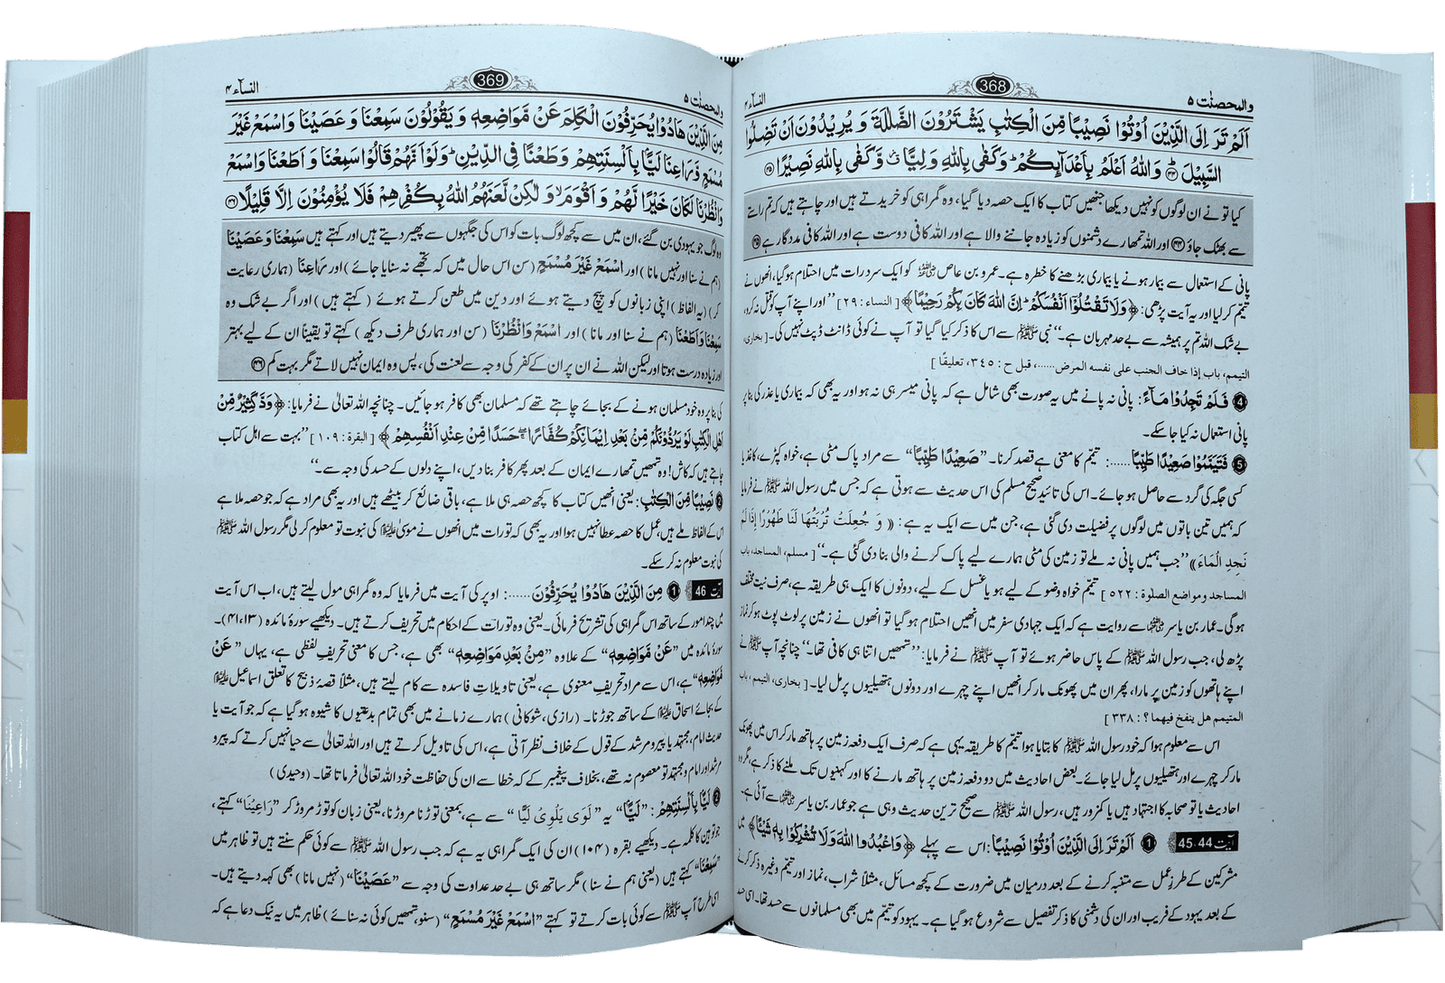 والمحصنت ٥
368
النساء ٤
اَلَمْ تَرَ اِلَى الَّذِيْنَ اُوْتُوْا نَصِيْبًا مِّنَ الْكِتٰبِ يَشْتَرُوْنَ الضَّلٰلَةَ وَ يُرِيْدُوْنَ اَنْ تَضِلُّوا
السَّبِيْلَ ؕ ﴿۴۴﴾ وَ اللّٰهُ اَعْلَمُ بِاَعْدَآىِٕكُمْ ؕ وَ كَفٰى بِاللّٰهِ وَلِيًّا ۙ وَّ كَفٰى بِاللّٰهِ نَصِيْرًا ﴿۴۵﴾
کیا تو نے ان لوگوں کو نہیں دیکھا جنھیں کتاب کا ایک حصہ دیا گیا، وہ گمراہی کو خریدتے ہیں اور چاہتے ہیں کہ تم راستے
سے بھٹک جاؤ ﴿۴۴﴾ اور اللہ تمھارے دشمنوں کو زیادہ جاننے والا ہے اور اللہ کافی دوست ہے اور اللہ کافی مددگار ہے ﴿۴۵﴾
پانی کے استعمال سے بیمار ہونے یا بیماری بڑھنے کا خطرہ ہے۔ عمرو بن عاص رضی اللہ عنہ کو ایک سرد رات میں احتلام ہوگیا، انھوں نے
تیمم کر لیا اور یہ آیت پڑھی: ﴿وَ لَا تَقْتُلُوْۤا اَنْفُسَكُمْ ؕ اِنَّ اللّٰهَ كَانَ بِكُمْ رَحِيْمًا﴾ [ النساء : ۲۹ ] ’’اور اپنے آپ کو قتل نہ کرو،
بے شک اللہ تم پر ہمیشہ سے بے حد مہربان ہے۔‘‘ نبی ﷺ سے اس کا ذکر کیا گیا تو آپ نے کوئی ڈانٹ ڈپٹ نہیں کی۔ [ بخاری،
التیمم، باب إذا خاف الجنب علی نفسه المرض......، قبل ح : ۳٤٥، تعلیقًا ]
4 فَلَمْ تَجِدُوْا مَآءً : پانی نہ پانے میں یہ صورت بھی شامل ہے کہ پانی میسر ہی نہ ہو اور یہ بھی کہ بیماری یا عذر کی بنا پر
پانی استعمال نہ کیا جا سکے۔
5 فَتَيَمَّمُوْا صَعِيْدًا طَيِّبًا ......: تیمم کا معنی ہے قصد کرنا۔ ’’صَعِيْدًا طَيِّبًا‘‘ سے مراد پاک مٹی ہے، خواہ کپڑے، کاغذ یا
کسی جگہ کی گرد سے حاصل ہو جائے۔ اس کی تائید صحیح مسلم کی اس حدیث سے ہوتی ہے کہ جس میں رسول اللہ ﷺ نے فرمایا
کہ ہمیں تین باتوں میں لوگوں پر فضیلت دی گئی ہے، جن میں سے ایک یہ ہے : « وَ جُعِلَتْ تُرْبَتُهَا لَنَا طَهُوْرًا إِذَا لَمْ
نَجِدِ الْمَاءَ » ’’جب ہمیں پانی نہ ملے تو زمین کی مٹی ہمارے لیے پاک کرنے والی بنا دی گئی ہے۔‘‘ [ مسلم، المساجد، باب
المساجد ومواضع الصلوة : ٥٢٢ ] تیمم خواہ وضو کے لیے ہو یا غسل کے لیے، دونوں کا ایک ہی طریقہ ہے، صرف نیت مختلف
ہوگی۔ عمار بن یاسر رضی اللہ عنہ سے روایت ہے کہ ایک جہادی سفر میں انھیں احتلام ہو گیا تو انھوں نے زمین پر لوٹ پوٹ ہو کر نماز
پڑھ لی، جب رسول اللہ ﷺ کے پاس حاضر ہوئے تو آپ ﷺ نے فرمایا : ’’تمھیں اتنا ہی کافی تھا۔‘‘ چنانچہ آپ ﷺ نے
اپنے ہاتھوں کو زمین پر مارا، پھر ان میں پھونک مار کر انھیں اپنے چہرے اور دونوں ہتھیلیوں پر مل لیا۔ [ بخاری، التیمم، باب
المتیمم هل ینفخ فیهما ؟ : ۳۳۸ ]
اس سے معلوم ہوا کہ خود رسول اللہ ﷺ کا بتایا ہوا تیمم کا طریقہ یہی ہے کہ صرف ایک دفعہ زمین پر ہاتھ مار کر اس میں پھونک
مار کر چہرے اور ہتھیلیوں پر مل لیا جائے۔ بعض احادیث میں دو دفعہ زمین پر ہاتھ مارنے کا اور کہنیوں تک ملنے کا ذکر ہے، مگر وہ
احادیث یا تو صحابہ کا اجتہاد ہیں یا کمزور ہیں، رسول اللہ ﷺ سے صحیح ترین حدیث وہی ہے جو عمار بن یاسر رضی اللہ عنہ سے آئی ہے۔
آیت 45،44 1 اَلَمْ تَرَ اِلَى الَّذِيْنَ اُوْتُوْا نَصِيْبًا : اس سے پہلے ﴿وَ اعْبُدُوا اللّٰهَ وَ لَا تُشْرِكُوْا بِهٖ شَيْـًٔا﴾ میں
مشرکین کے طرزِ عمل سے متنبہ کرنے کے بعد درمیان میں ضرورت کے کچھ مسائل، مثلاً شراب، نماز اور تیمم وغیرہ ذکر کرنے
کے بعد یہود کے فریب اور ان کی دشمنی کا ذکر تفصیل سے شروع ہو گیا ہے۔ یہود کو تیمم میں بھی مسلمانوں سے حسد تھا۔ اسی حسد
والمحصنت ٥
369
النساء ٤
مِنَ الَّذِيْنَ هَادُوْا يُحَرِّفُوْنَ الْكَلِمَ عَنْ مَّوَاضِعِهٖ وَ يَقُوْلُوْنَ سَمِعْنَا وَ عَصَيْنَا وَ اسْمَعْ غَيْرَ
مُسْمَعٍ وَّ رَاعِنَا لَيًّۢا بِاَلْسِنَتِهِمْ وَ طَعْنًا فِى الدِّيْنِ ؕ وَ لَوْ اَنَّهُمْ قَالُوْا سَمِعْنَا وَ اَطَعْنَا وَ اسْمَعْ
وَ انْظُرْنَا لَكَانَ خَيْرًا لَّهُمْ وَ اَقْوَمَ ۙ وَ لٰكِنْ لَّعَنَهُمُ اللّٰهُ بِكُفْرِهِمْ فَلَا يُؤْمِنُوْنَ اِلَّا قَلِيْلًا ﴿۴۶﴾
وہ لوگ جو یہودی بن گئے، ان میں سے کچھ لوگ بات کو اس کی جگہوں سے پھیر دیتے ہیں اور کہتے ہیں سَمِعْنَا وَ عَصَيْنَا
(ہم نے سنا اور نہیں مانا) اور اسْمَعْ غَيْرَ مُسْمَعٍ (سن اس حال میں کہ تجھے نہ سنایا جائے) اور رَاعِنَا (ہماری رعایت
کر) (یہ الفاظ) اپنی زبانوں کو پیچ دیتے ہوئے اور دین میں طعن کرتے ہوئے (کہتے ہیں) اور اگر بے شک وہ
سَمِعْنَا وَ اَطَعْنَا (ہم نے سنا اور مانا) اور اسْمَعْ وَ انْظُرْنَا (سن اور ہماری طرف دیکھ) کہتے تو یقینا ان کے لیے بہتر
اور زیادہ درست ہوتا اور لیکن اللہ نے ان پر ان کے کفر کی وجہ سے لعنت کی، پس وہ ایمان نہیں لاتے مگر بہت کم ﴿۴۶﴾
کی بنا پر وہ خود مسلمان ہونے کے بجائے چاہتے تھے کہ مسلمان بھی کافر ہو جائیں۔ چنانچہ اللہ تعالیٰ نے فرمایا: ﴿وَدَّ كَثِيْرٌ مِّنْ
اَهْلِ الْكِتٰبِ لَوْ يَرُدُّوْنَكُمْ مِّنْۢ بَعْدِ اِيْمَانِكُمْ كُفَّارًا ۖۚ حَسَدًا مِّنْ عِنْدِ اَنْفُسِهِمْ﴾ [ البقرة : ۱۰۹ ] ’’بہت سے اہل کتاب
چاہتے ہیں کہ کاش! وہ تمھیں تمھارے ایمان کے بعد پھر کافر بنا دیں، اپنے دلوں کے حسد کی وجہ سے۔‘‘
2 نَصِيْبًا مِّنَ الْكِتٰبِ : یعنی انھیں کتاب کا کچھ حصہ ہی ملا ہے، باقی ضائع کر بیٹھے ہیں اور یہ بھی مراد ہے کہ جو حصہ ملا ہے
اس کے الفاظ ملے ہیں، عمل کا حصہ عطا نہیں ہوا اور یہ بھی کہ تورات میں انھوں نے موسیٰ علیہ السلام کی نبوت تو معلوم کر لی مگر رسول اللہ ﷺ
کی نبوت معلوم نہ کر سکے۔
آیت 46 1 مِنَ الَّذِيْنَ هَادُوْا يُحَرِّفُوْنَ ......: اوپر کی آیت میں فرمایا کہ وہ گمراہی مول لیتے ہیں، اب اس آیت
میں چند امور کے ساتھ اس گمراہی کی تشریح فرمائی۔ یعنی وہ تورات کے احکام میں تحریف کرتے ہیں۔ دیکھیے سورۂ مائدہ (۱۳،۴۱)۔
سورۂ مائدہ میں ’’عَنْ مَّوَاضِعِهٖ‘‘ کے علاوہ ’’مِنْۢ بَعْدِ مَوَاضِعِهٖ‘‘ بھی ہے، جس کا معنی تحریفِ لفظی ہے، یہاں ’’عَنْ
مَّوَاضِعِهٖ‘‘ ہے، اس سے مراد تحریف معنوی ہے، یعنی تاویلات فاسدہ سے کام لیتے ہیں، مثلاً قصۂ ذبیح کا تعلق اسماعیل علیہ السلام
کے بجائے اسحاق علیہ السلام کے ساتھ جوڑنا۔ (رازی، شوکانی) ہمارے زمانے میں بھی تمام بدعتیوں کا شیوہ ہو گیا ہے کہ جو آیت یا
حدیث امام، مجتہد یا پیر و مرشد کے قول کے خلاف نظر آتی ہے، اس کی تاویل کرتے ہیں اور اللہ تعالیٰ سے حیا نہیں کرتے کہ پیر و
مرشد اور امام و مجتہد تو معصوم نہ تھے، بخلاف پیغمبر کے کہ خطا سے ان کی حفاظت خود اللہ تعالیٰ فرماتا تھا۔ (وحیدی)
2 لَيًّۢا بِاَلْسِنَتِهِمْ : ’’لَيًّا‘‘ یہ ’’لَوَى يَلْوِيْ لَيًّا‘‘ سے ہے، بمعنی توڑنا مروڑنا، یعنی زبان کو توڑ مروڑ کر ’’رَاعِنَا‘‘ کہتے،
جو توہین کا کلمہ ہے۔ دیکھیے بقرہ (۱۰۴) ان کی ایک گمراہی یہ ہے کہ جب رسول اللہ ﷺ سے کوئی حکم سنتے ہیں تو ظاہر میں
’’سَمِعْنَا‘‘ کہتے ہیں (یعنی ہم نے سنا) مگر ساتھ ہی بے حد عداوت کی وجہ سے ’’عَصَيْنَا‘‘ (نہیں مانا) بھی کہہ دیتے ہیں۔
اسی طرح آپ ﷺ سے کوئی بات کرتے تو کہتے ’’اسْمَعْ غَيْرَ مُسْمَعٍ‘‘ (سنو، تمھیں کوئی نہ سنائے) ظاہر میں یہ نیک دعا ہے کہ